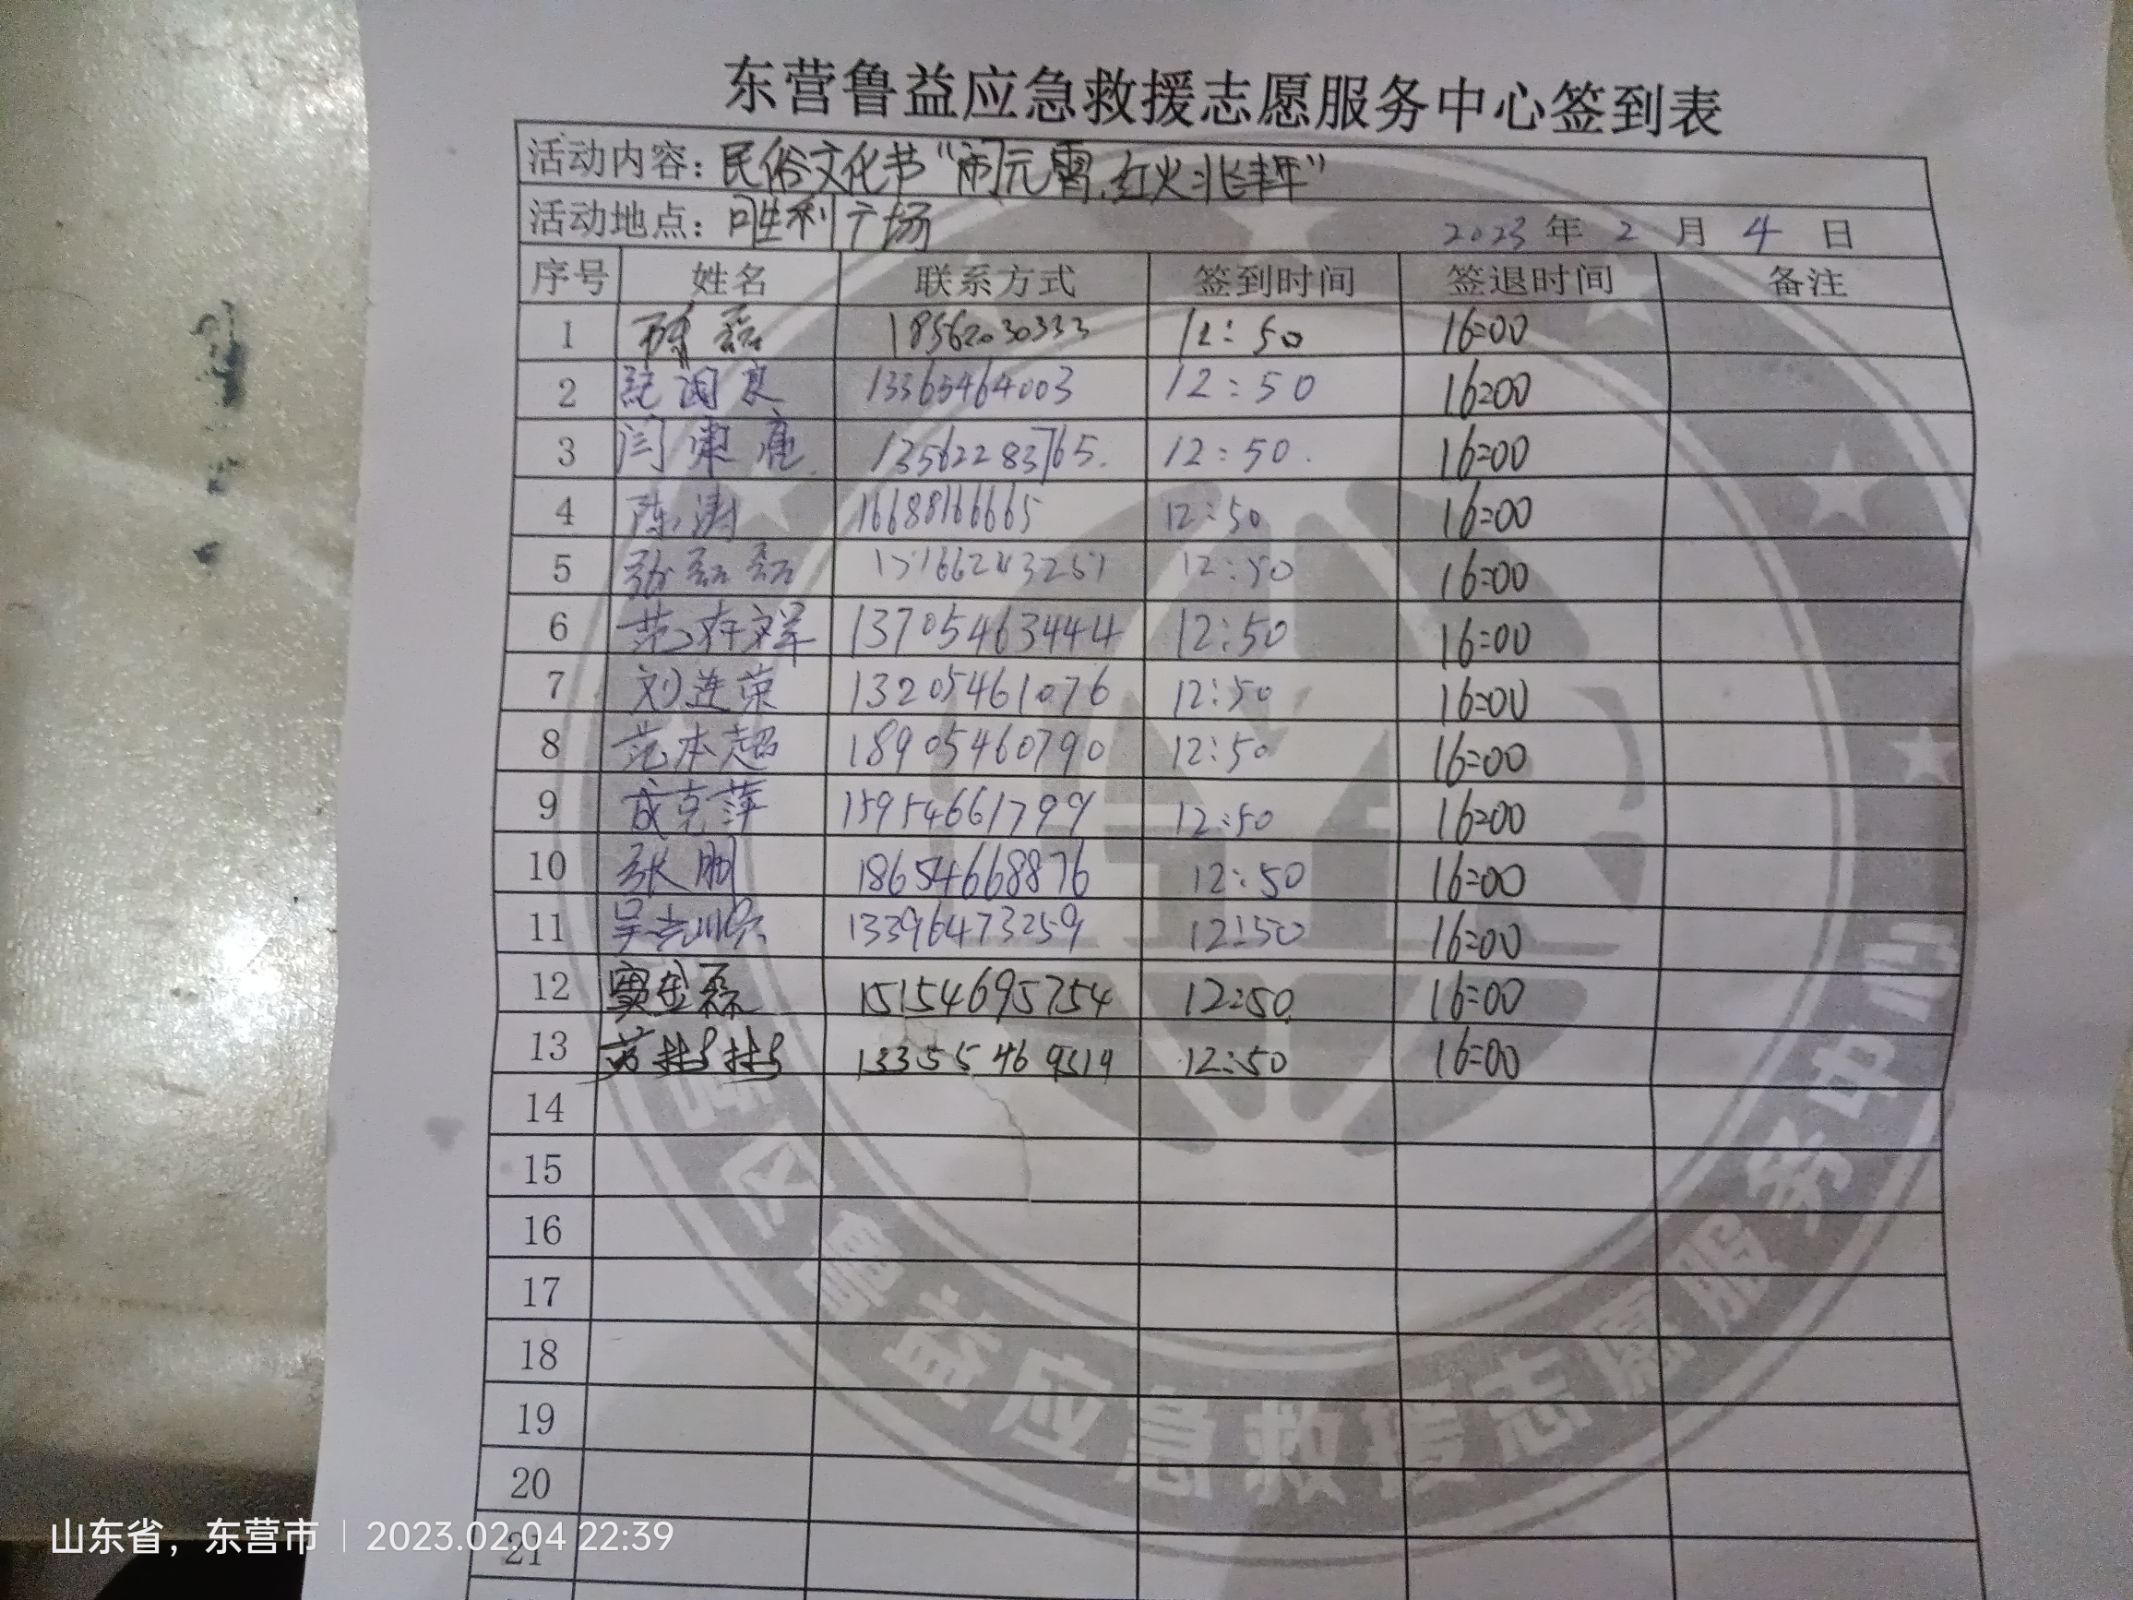 东营鲁益应急救援志愿服务中心签到表
活动内容：民俗文化节“闹元宵，红火兆丰年”
活动地点：胜利广场 2023 年 2 月 4 日
序号 姓名 联系方式 签到时间 签退时间 备注
1 磊 18562030333 12:50 16:00
2 国良 13365464003 12:50 16:00
3 闫 13562283765. 12:50. 16:00
4 陈涛 16688166665 12:50 16:00
5 磊磊 12:50 16:00
6 范存军 13705463444 12:50 16:00
7 刘连荣 13205461076 12:50 16:00
8 范本超 18905460790 12:50 16:00
9 成克萍 15954661799 12:50 16:00
10 张鹏 18654668876 12:50 16:00
11 吴 13396473259 12:50 16:00
12 磊 15154695754 12:50 16:00
13 12:50 16:00
14
15
16
17
18
19
20
21
区鲁益应急救援志愿服务中心
山东省，东营市 2023.02.04 22:39